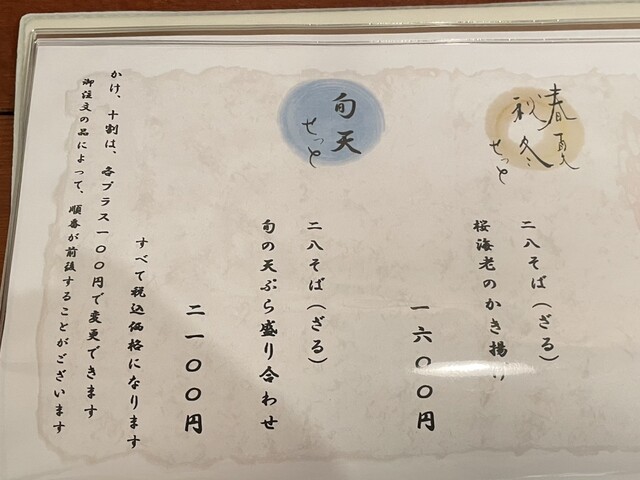 春夏
秋冬
せっと
二八そば(ざる)
桜海老のかき揚げ
一六〇〇円
旬天
せっと
二八そば(ざる)
旬の天ぷら盛り合わせ
二一〇〇円
すべて税込価格になります
かけ、十割は、各プラス一〇〇円で変更できます
御注文の品によって、順番が前後することがございます